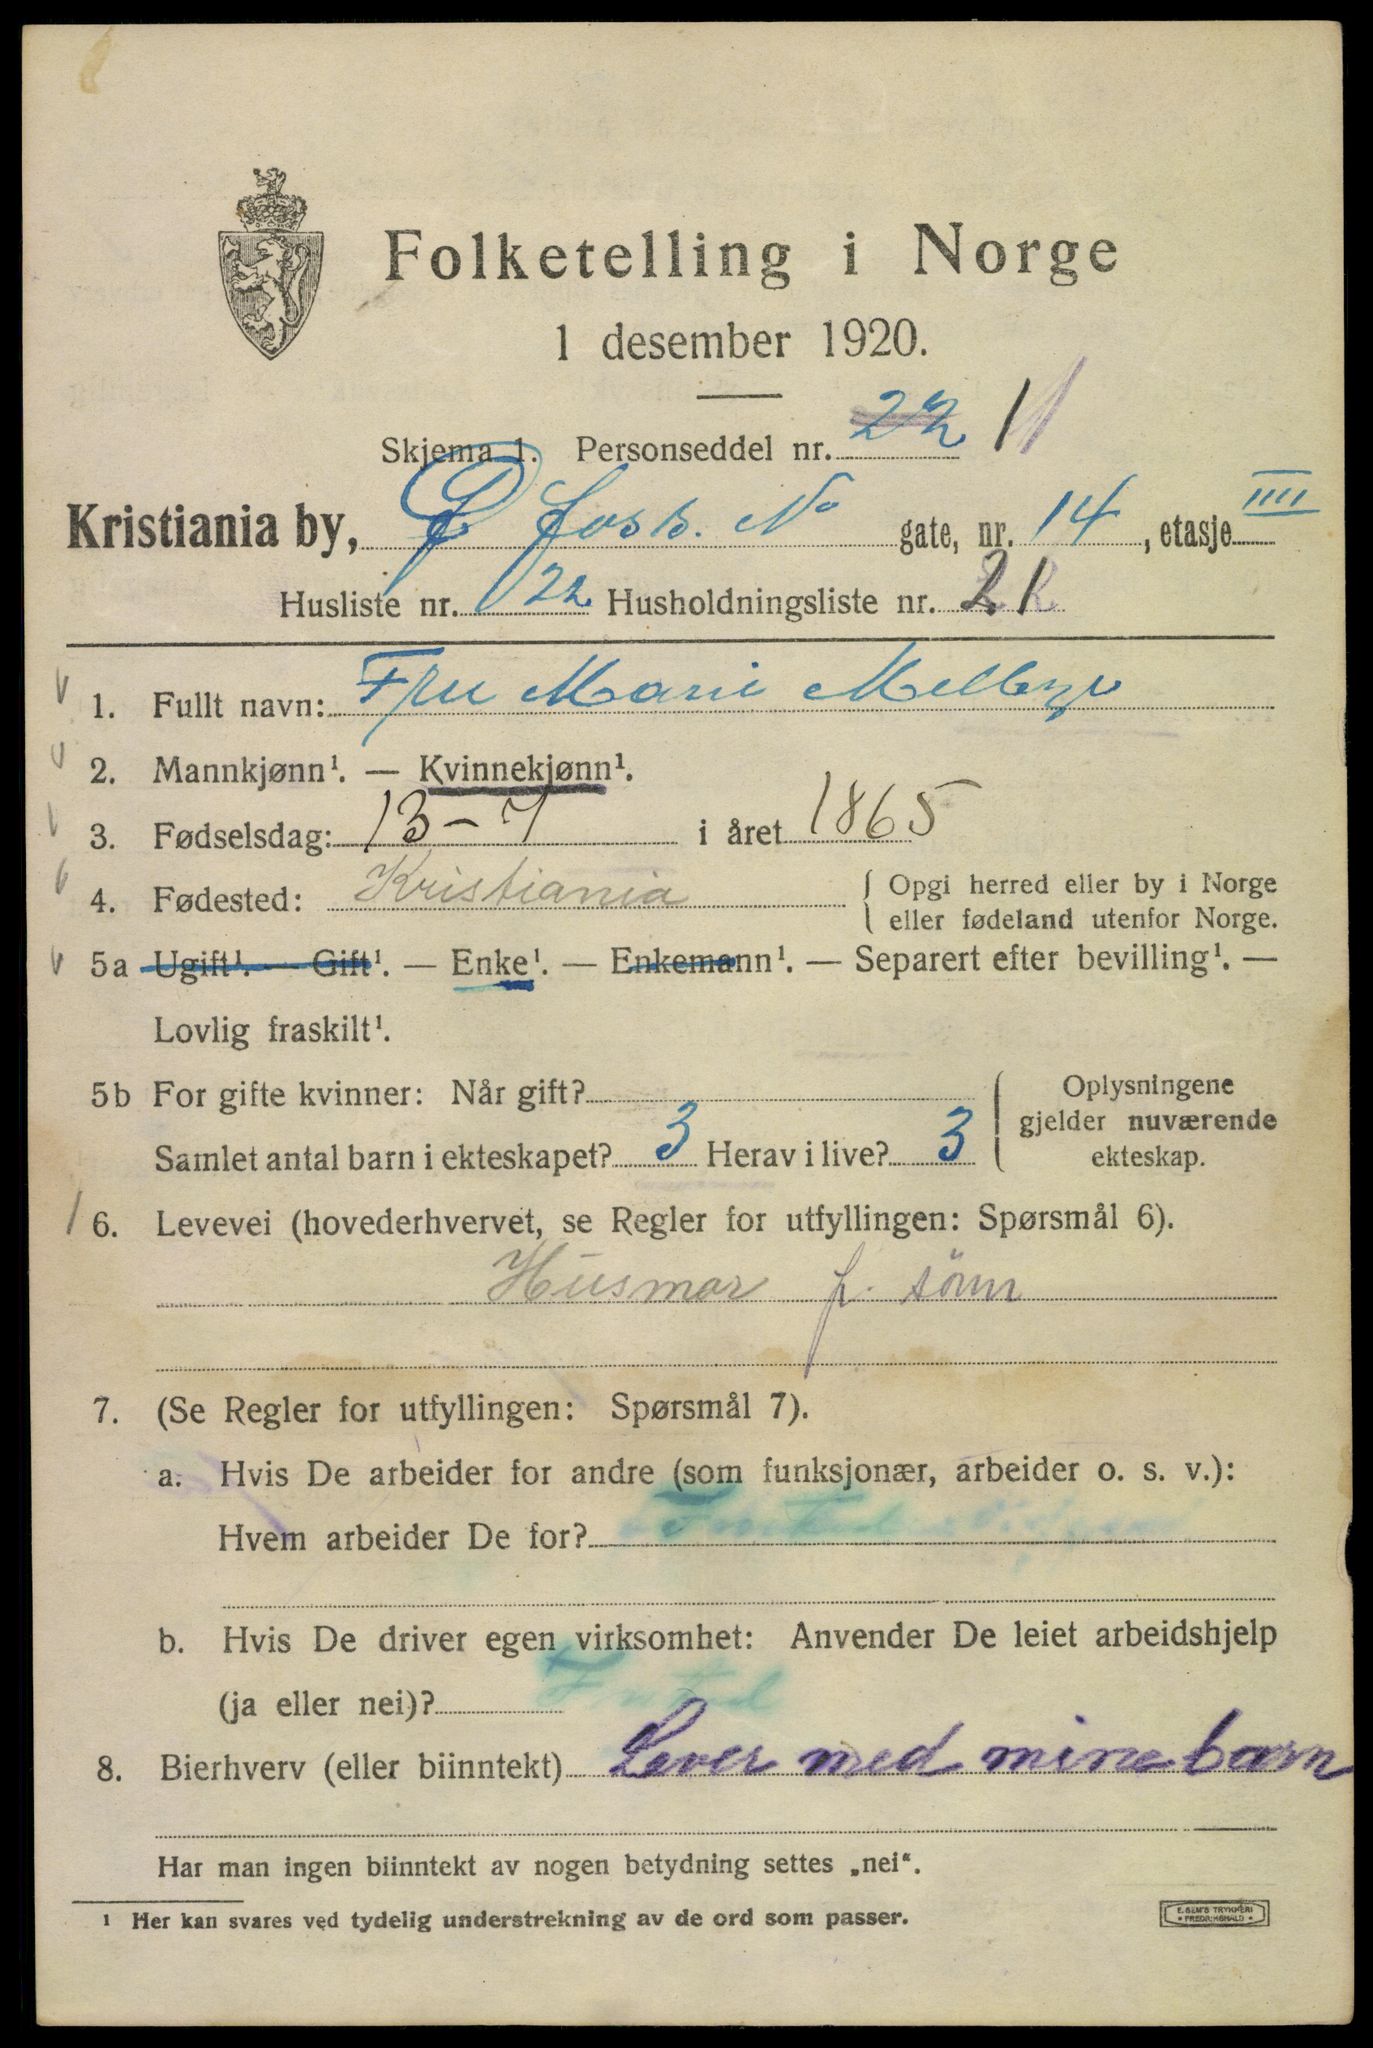 Folketelling i Norge
1 desember 1920.
Skjema 1. Personseddel nr. 22 11
Kristiania by, P Foss. No gate, nr. 14, etasje IIII
Husliste nr. 22 Husholdningsliste nr. 21
1. Fullt navn: Fru Marie Mellbye
2. Mannkjønn¹. — Kvinnekjønn¹.
3. Fødselsdag: 13-7 i året 1865
4. Fødested: Kristiania { Opgi herred eller by i Norge
eller fødeland utenfor Norge.
5a Ugift¹. — Gift¹. — Enke¹. — Enkemann¹. — Separert efter bevilling¹. —
Lovlig fraskilt¹.
5b For gifte kvinner: Når gift? { Oplysningene
gjelder nuværende
Samlet antal barn i ekteskapet? 3 Herav i live? 3 ekteskap.
6. Levevei (hovederhvervet, se Regler for utfyllingen: Spørsmål 6).
Husmor f. sönn
7. (Se Regler for utfyllingen: Spørsmål 7).
a. Hvis De arbeider for andre (som funksjonær, arbeider o. s. v.):
Hvem arbeider De for?
b. Hvis De driver egen virksomhet: Anvender De leiet arbeidshjelp
(ja eller nei)?
8. Bierhverv (eller biinntekt) Lever med mine barn
Har man ingen biinntekt av nogen betydning settes „nei“.
¹ Her kan svares ved tydelig understrekning av de ord som passer.
E. SEM'S TRYKKERI
• FREDRIKSHALD •